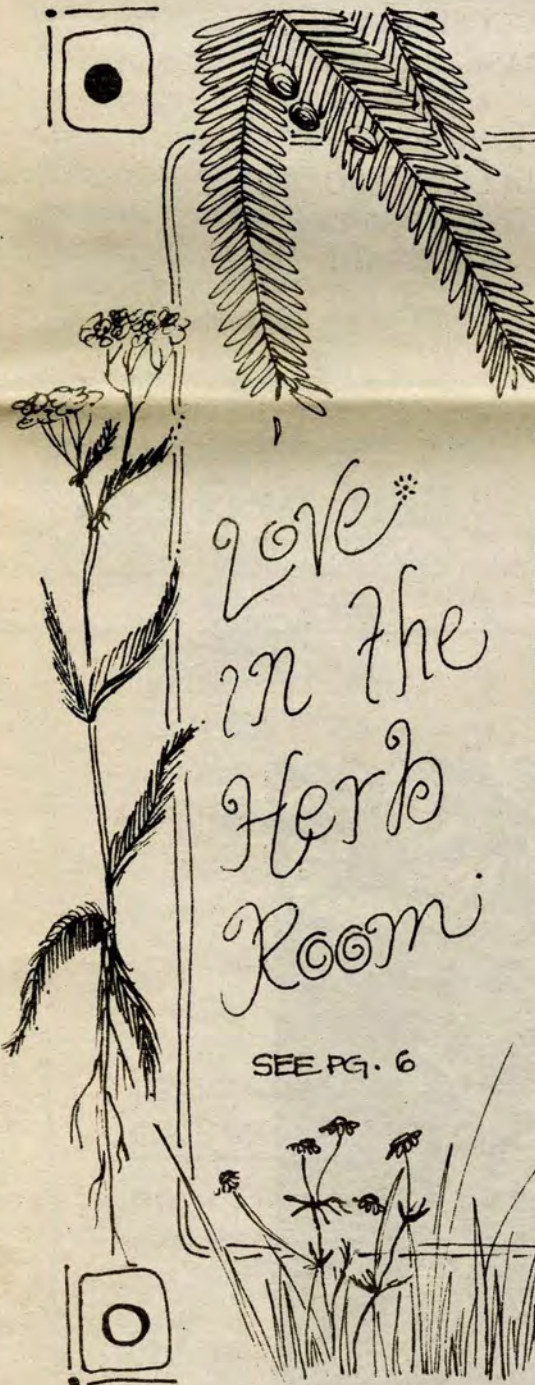 Love
in the
Herb
Room
SEE PG. 6